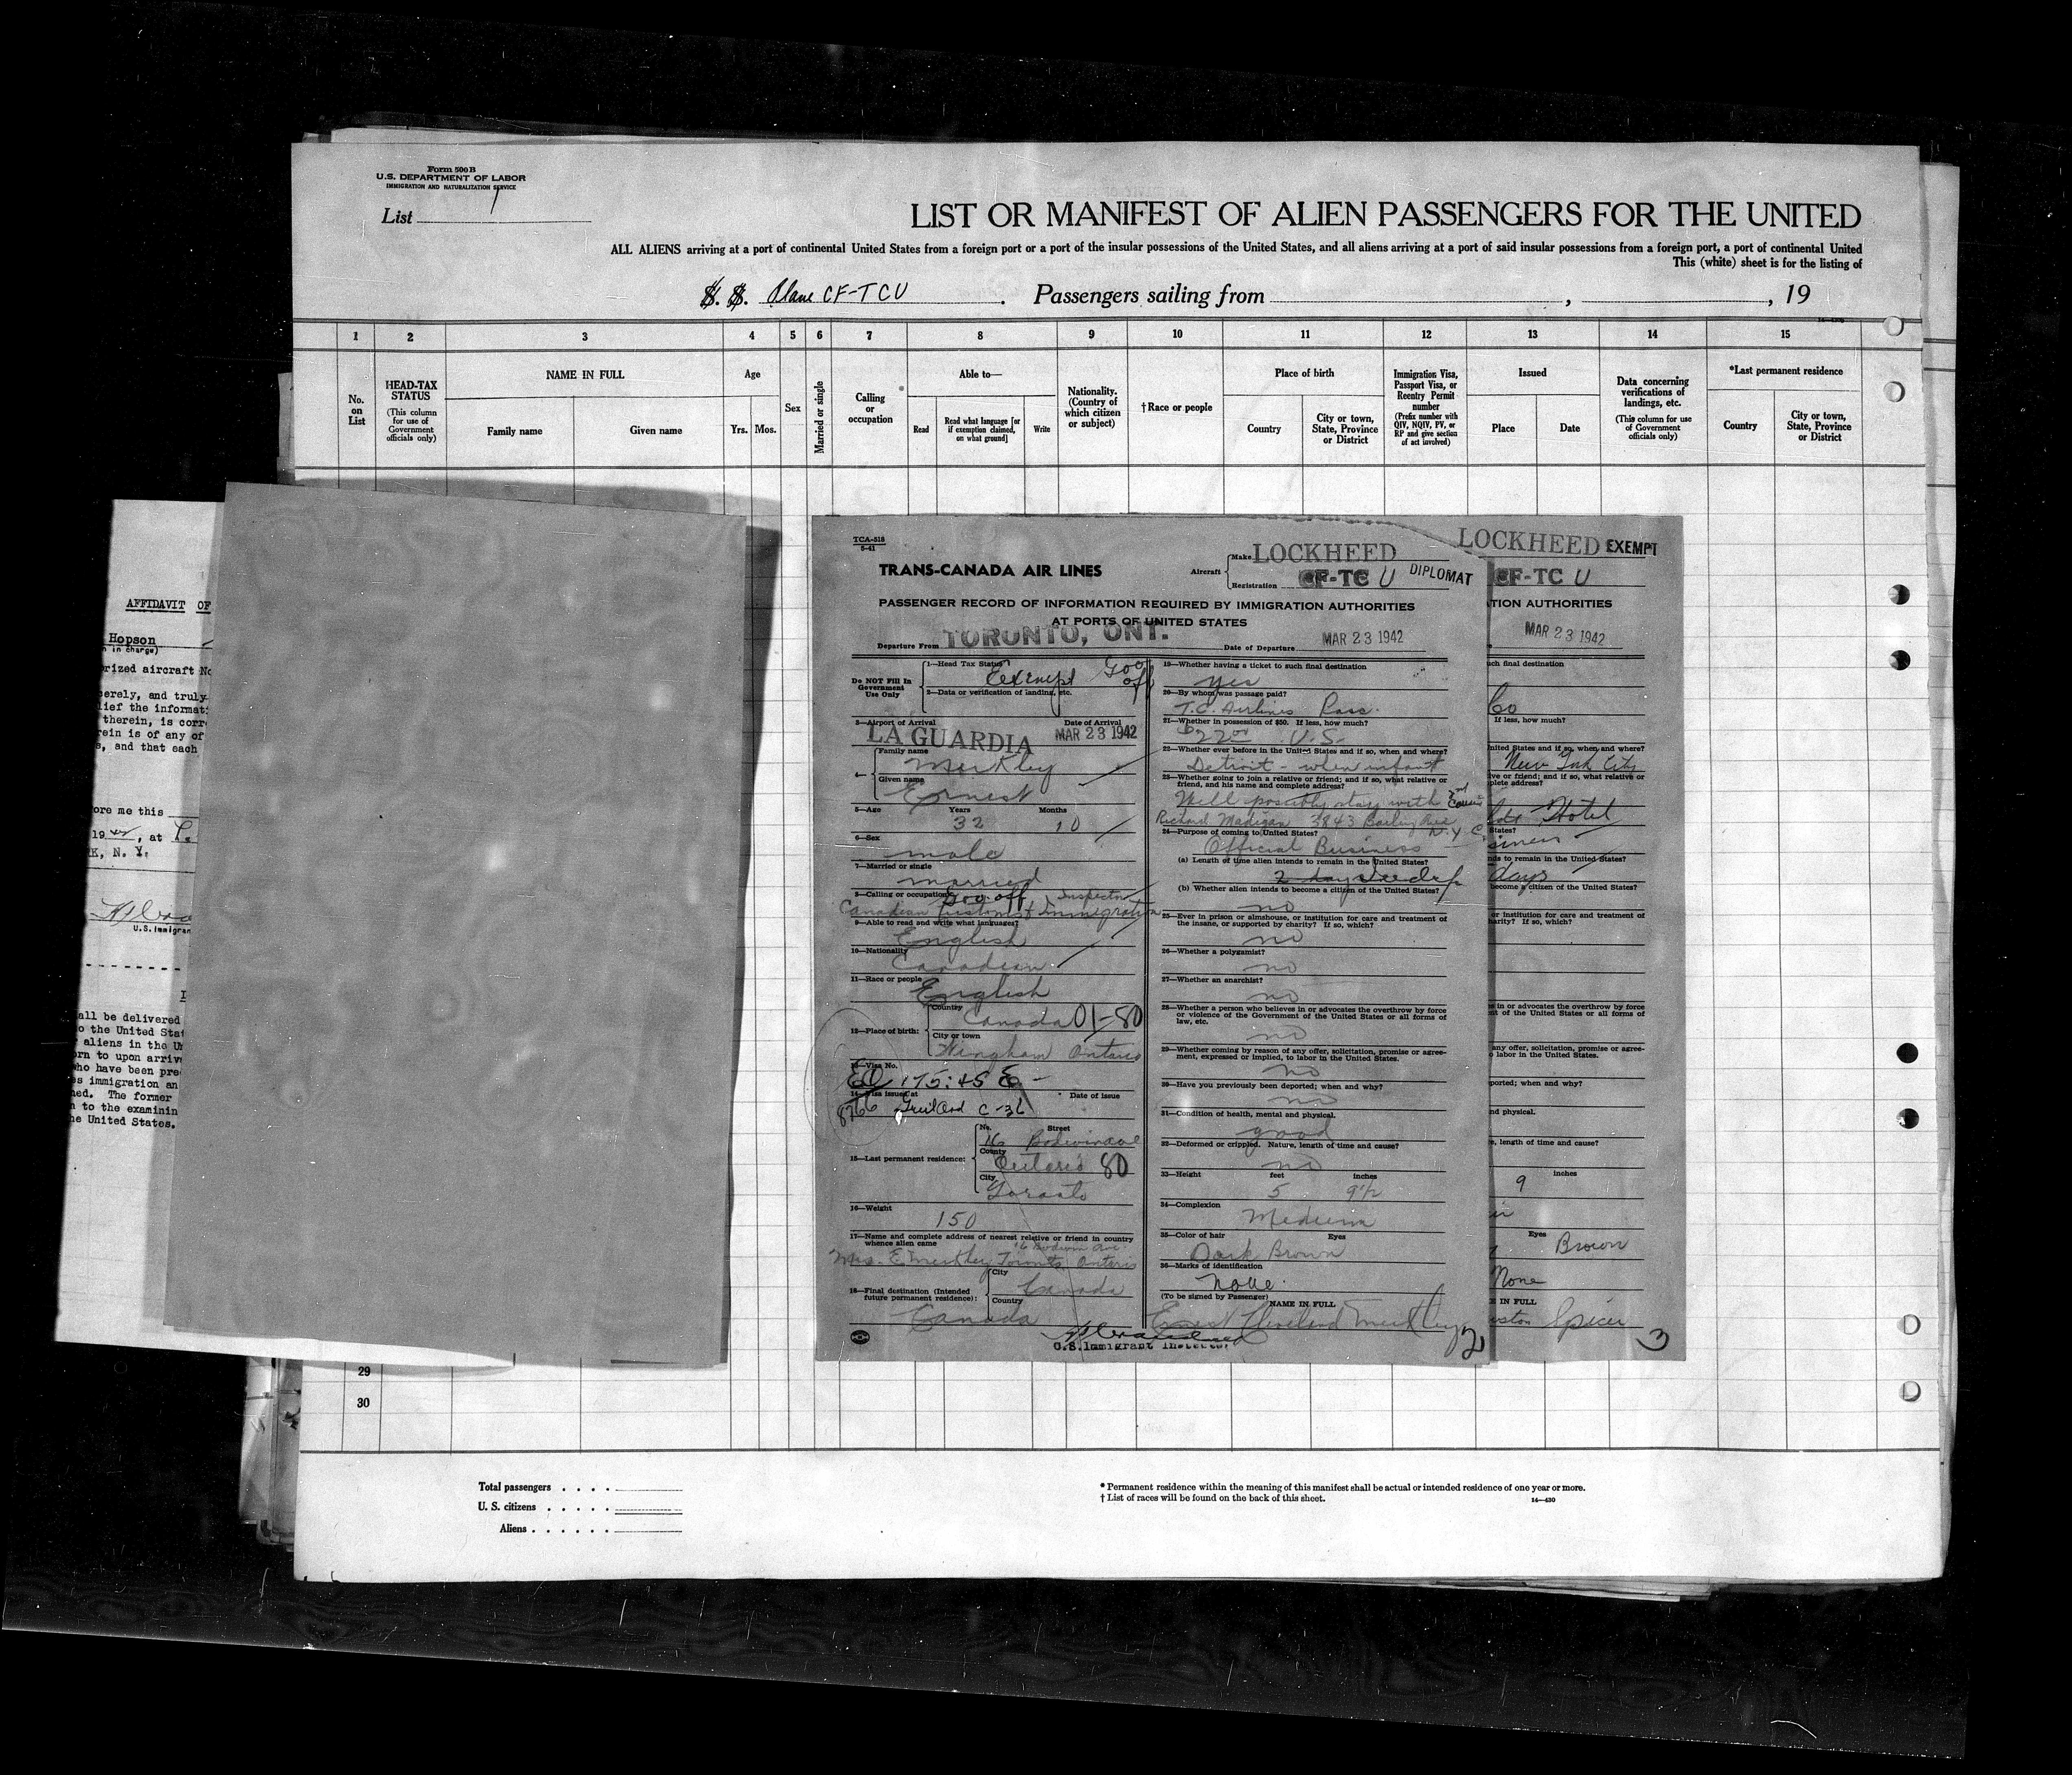 Form 500 B
U.S. DEPARTMENT OF LABOR
IMMIGRATION AND NATURALIZATION SERVICE
List 1
LIST OR MANIFEST OF ALIEN PASSENGERS FOR THE UNITED
ALL ALIENS arriving at a port of continental United States from a foreign port or a port of the insular possessions of the United States, and all aliens arriving at a port of said insular possessions from a foreign port, a port of continental United
This (white) sheet is for the listing of
S. S. Plane CF-TCU . Passengers sailing from , , 19
1 2 3 4 5 6 7 8 9 10 11 12 13 14 15
No. on List
HEAD-TAX STATUS
(This column for use of Government officials only)
NAME IN FULL
Family name
Given name
Age
Yrs.
Mos.
Sex
Married or single
Calling or occupation
Able to—
Read
Read what language [or if exemption claimed, on what ground]
Write
Nationality. (Country of which citizen or subject)
†Race or people
Place of birth
Country
City or town, State, Province or District
Immigration Visa, Passport Visa, or Reentry Permit number
(Prefix number with QIV, NQIV, PV, or RP and give section of act involved)
Issued
Place
Date
Data concerning verifications of landings, etc.
(This column for use of Government officials only)
*Last permanent residence
Country
City or town, State, Province or District
AFFIDAVIT OF
Hopson
n in charge)
rized aircraft No
erely, and truly
lief the informati
therein, is corr
rein is of any of
s, and that each
ore me this
19 , at
K, N. Y.
U.S. Immigran
all be delivered
o the United Stat
aliens in the Un
rn to upon arriv
ho have been pre
s immigration an
ned. The former
n to the examinin
he United States.
TCA-518
5-41
TRANS-CANADA AIR LINES
Aircraft
Make LOCKHEED
Registration CF-TC U
DIPLOMAT
PASSENGER RECORD OF INFORMATION REQUIRED BY IMMIGRATION AUTHORITIES
AT PORTS OF UNITED STATES
Departure From TORONTO, ONT.
Date of Departure MAR 23 1942
Do NOT Fill In Government Use Only
1—Head Tax Status Exempt Gov off
2—Data or verification of landing, etc.
3—Airport of Arrival LA GUARDIA
Date of Arrival MAR 23 1942
4—
Family name Merkley
Given name Ernest
5—Age Years 32 Months 10
6—Sex male
7—Married or single married
8—Calling or occupation Gov off Inspector
Canadian Customs & Immigration
9—Able to read and write what languages? English
10—Nationality Canadian
11—Race or people English
12—Place of birth:
Country Canada 01-80
City or town Wingham Ontario
13—Visa No. EO 175:45 E -
14—Visa issued at Date of issue
8766 C-36
15—Last permanent residence:
No. 16 Street
County Ontario 80
City Toronto
16—Weight 150
17—Name and complete address of nearest relative or friend in country whence alien came
Mrs. E Merkley Toronto Ontario
18—Final destination (Intended future permanent residence):
City Canada
Country Canada
19—Whether having a ticket to such final destination
yes
20—By whom was passage paid?
T.C. Airlines Pass.
21—Whether in possession of $50. If less, how much?
$22 00 U.S.
22—Whether ever before in the United States and if so, when and where?
Detroit - when infant
23—Whether going to join a relative or friend; and if so, what relative or friend, and his name and complete address?
Will possibly stay with 2nd Cousin
Richard Madigan 3843 Bailey Ave N.Y.C.
24—Purpose of coming to United States?
Official Business
(a) Length of time alien intends to remain in the United States?
2 days
(b) Whether alien intends to become a citizen of the United States?
no
25—Ever in prison or almshouse, or institution for care and treatment of the insane, or supported by charity? If so, which?
no
26—Whether a polygamist?
no
27—Whether an anarchist?
no
28—Whether a person who believes in or advocates the overthrow by force or violence of the Government of the United States or all forms of law, etc.
no
29—Whether coming by reason of any offer, solicitation, promise or agreement, expressed or implied, to labor in the United States.
no
30—Have you previously been deported; when and why?
no
31—Condition of health, mental and physical.
good
32—Deformed or crippled. Nature, length of time and cause?
no
33—Height feet 5 inches 9 1/2
34—Complexion
Medium
35—Color of hair Eyes
Dark Brown
36—Marks of identification
None.
(To be signed by Passenger) NAME IN FULL
Ernest Cleveland Merkley
U.S. Immigrant Inspector
2
LOCKHEED EXEMPT
CF-TC U
TION AUTHORITIES
MAR 23 1942
uch final destination
Co
If less, how much?
nited States and if so, when and where?
New York City
ive or friend; and if so, what relative or
plete address?
Hotel
States?
siness
nds to remain in the United States?
days
become a citizen of the United States?
or institution for care and treatment of
harity? If so, which?
s in or advocates the overthrow by force
nt of the United States or all forms of
any offer, solicitation, promise or agree-
o labor in the United States.
ported; when and why?
nd physical.
e, length of time and cause?
inches
9
Eyes
Brown
None
E IN FULL
Spicer
3
29
30
Total passengers . . . .
U. S. citizens . . . . .
Aliens . . . . . .
* Permanent residence within the meaning of this manifest shall be actual or intended residence of one year or more.
† List of races will be found on the back of this sheet.
14—430